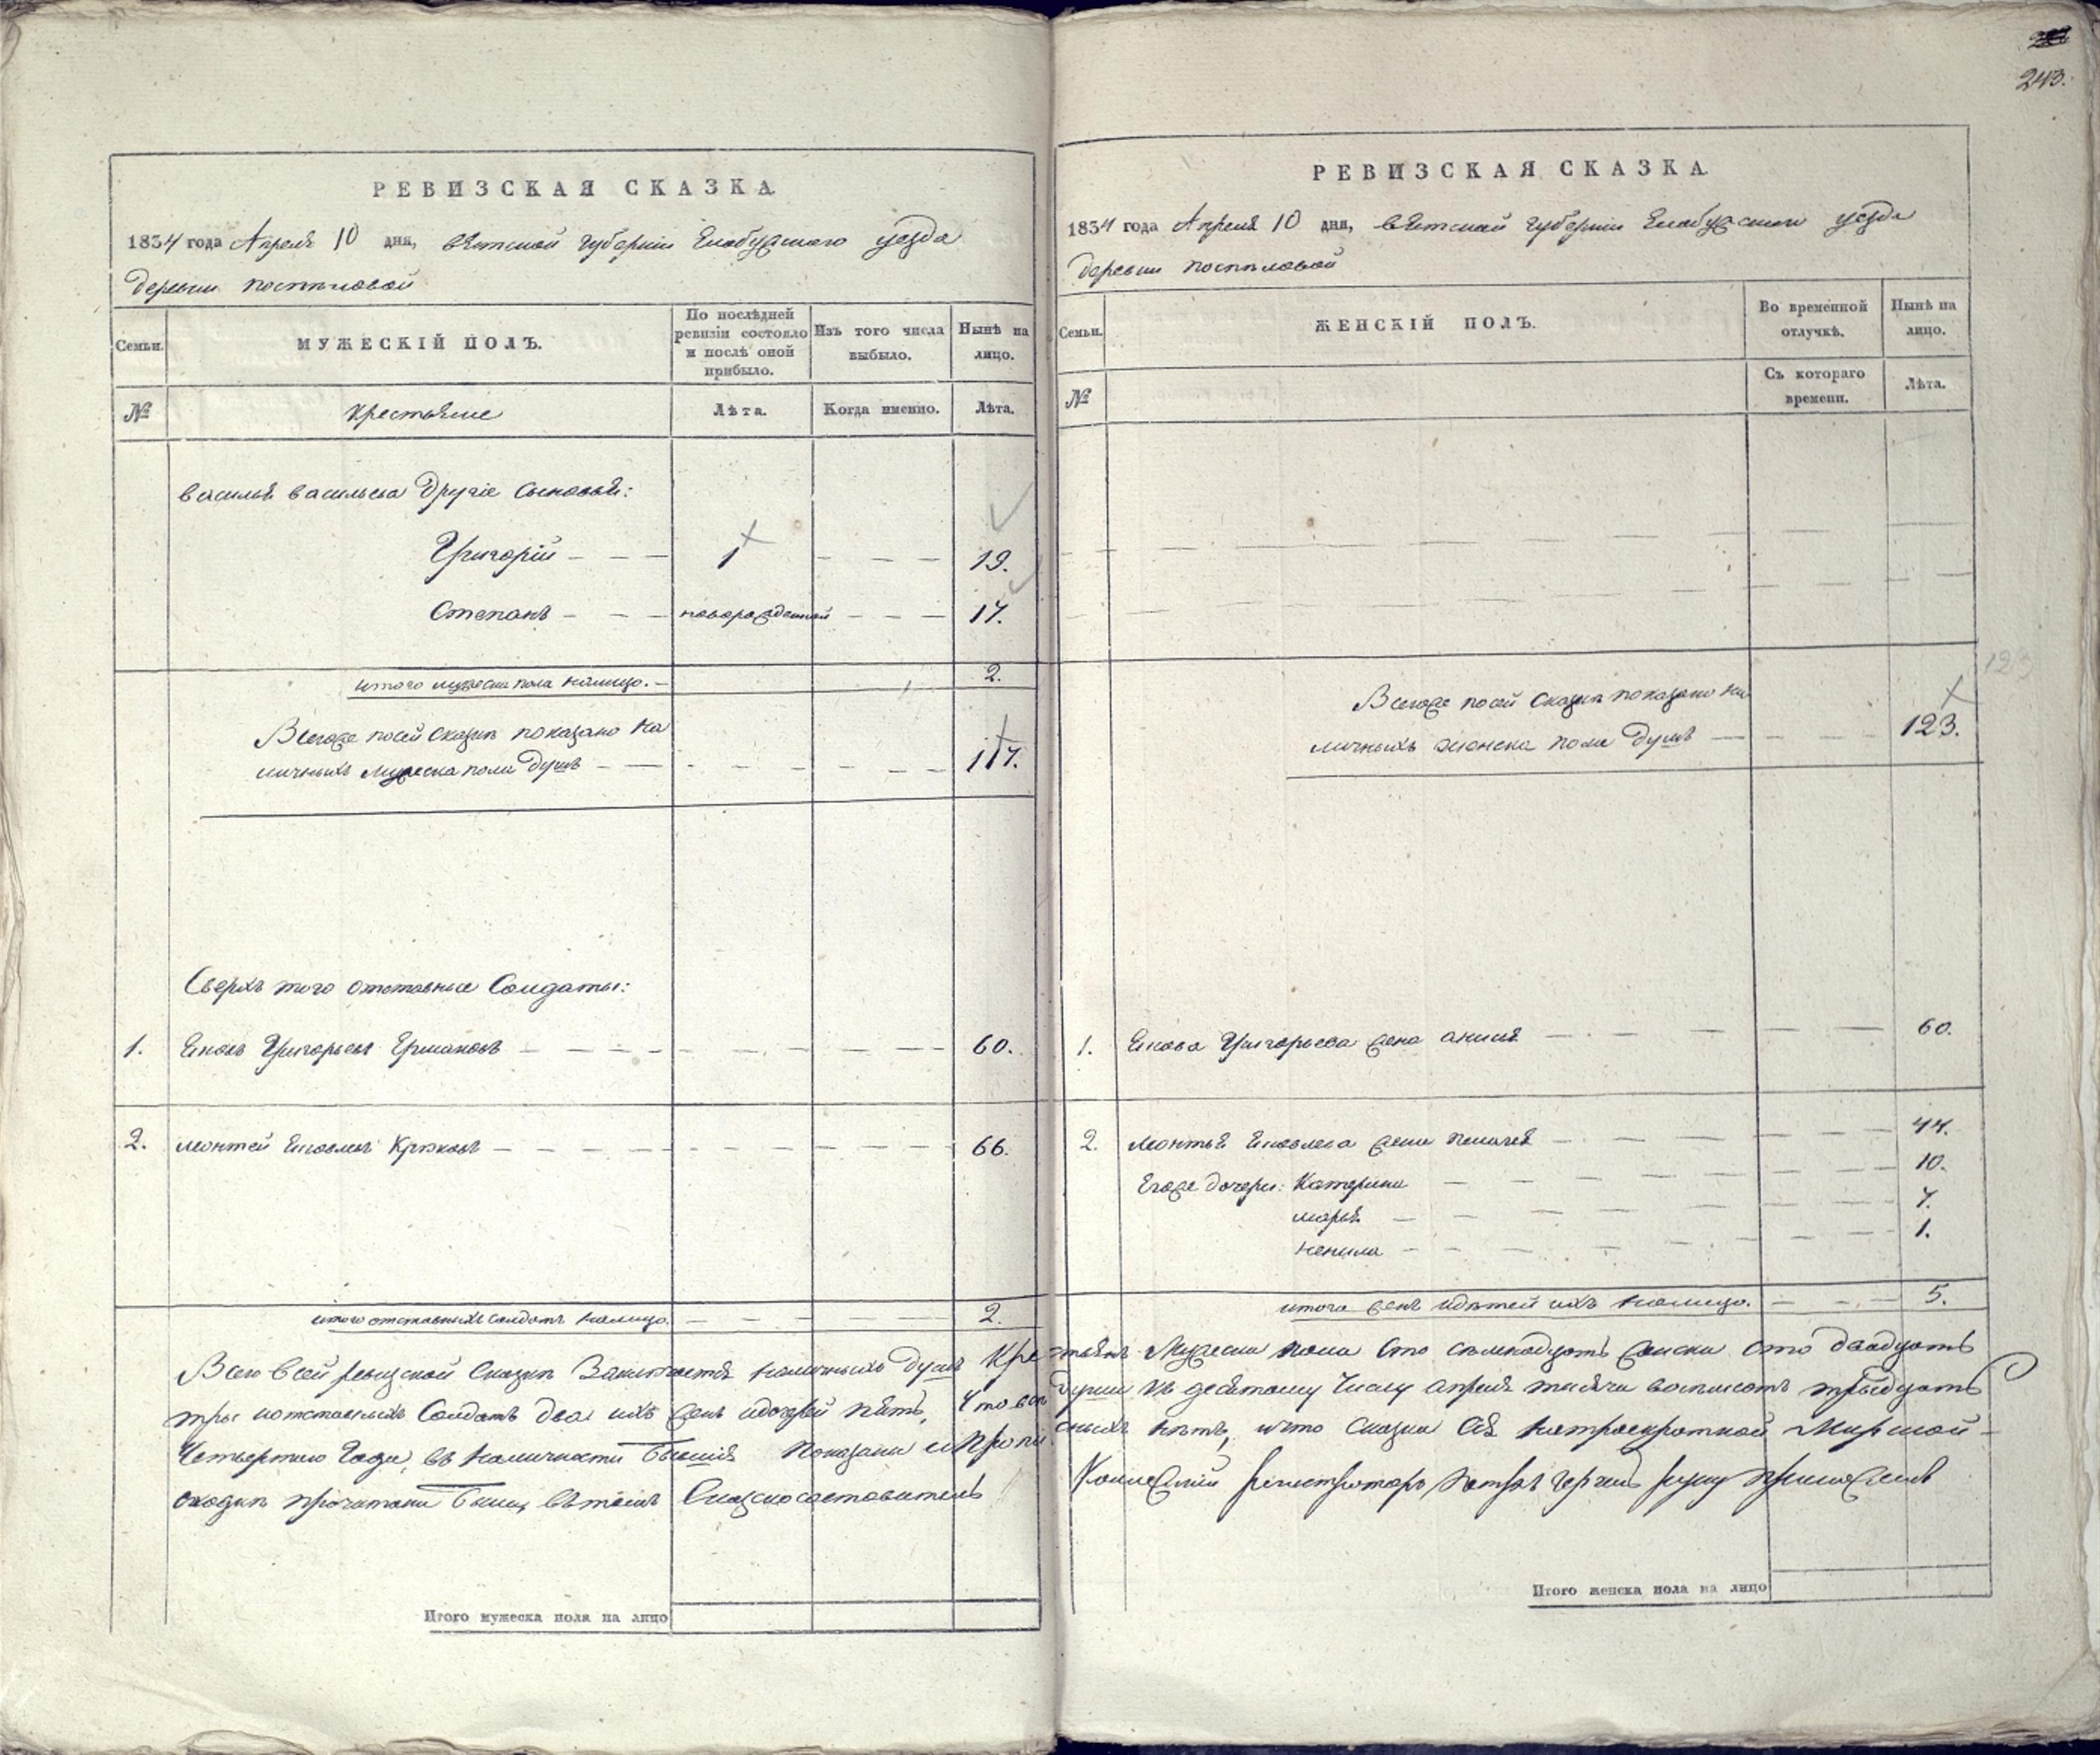 243.
РЕВИЗСКАЯ СКАЗКА
1834 года Апреля 10 дня, вятской губернии Елабужского уезда
деревни поспѣловой
Семьи. МУЖЕСКІЙ ПОЛЪ. По послѣдней ревизіи состояло и послѣ оной прибыло. Изъ того числа выбыло. Нынѣ на лицо.
№ Крестьяне Лѣта. Когда именно. Лѣта.
василья васильева другіе сыновья:
Григорій 1 19.
Степанъ новорожденной 17.
итого мужеска пола налицо. 2.
Всегоже посей сказкѣ показано на
личныхъ мужеска пола душъ 117.
Сверхъ того отставные Солдаты:
1. Яковъ Григорьевъ Ермаковъ 60.
2. леонтей Яковлевъ Крюковъ 66.
итого отставныхъ солдатъ налицо. 2.
РЕВИЗСКАЯ СКАЗКА
1834 года Апреля 10 дня, вятской губернии Елабужскаго уезда
деревни поспѣловой
Семьи. ЖЕНСКІЙ ПОЛЪ. Во временной отлучкѣ. Нынѣ на лицо.
№ Съ котораго времени. Лѣта.
123
Всегоже посей сказкѣ показано на
личныхъ женска пола душъ 123.
1. Якова Григорьева жена анисья 60.
2. леонтья Яковлева жена 44.
Егоже дочери: Катерина 10.
марья 7.
ненила 1.
итого женъ идѣтей ихъ налицо. 5.
Всего всей ревизской сказкѣ Заключается наличныхъ душъ Крестьянъ Мужеска пола сто семнадцать женска сто двадцать
три иотставныхъ Солдатъ два ихъ женъ идочерей пять, Что все души къ десятому Числу апреля тысяча восемьсотъ тридцать
Четвертаго Года, въ наличности бывшія показаны ипропис­ныхъ нѣтъ, ичто сказка сія натроекратной Мирской
сходкѣ прочитана была, вътомъ Сказкосоставитель Коллежскій регистраторъ Петръ руку приложилъ
Итого мужеска пола на лицо
Итого женска пола на лицо